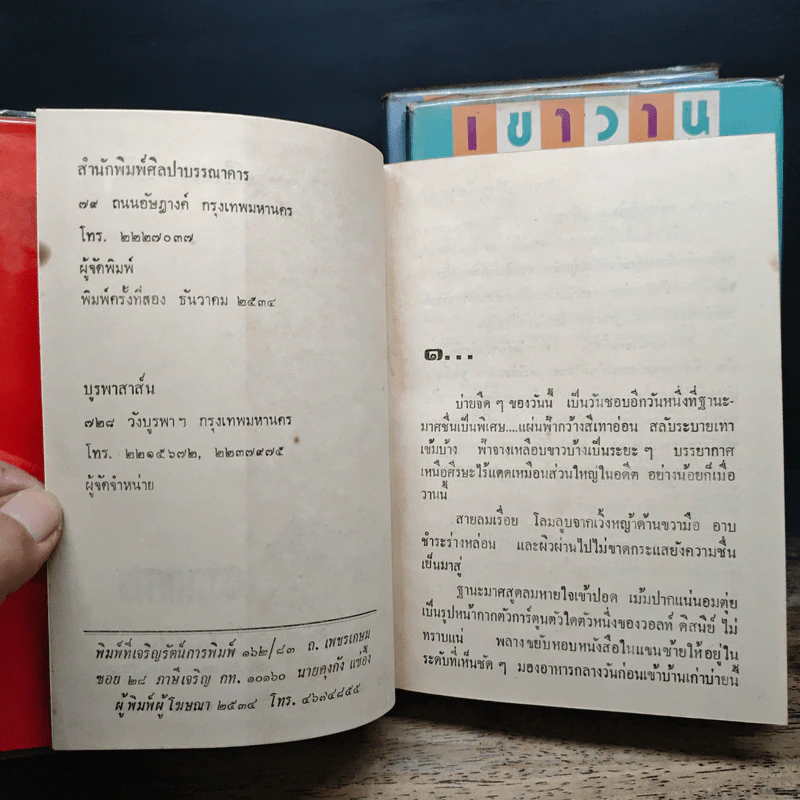 เขาวาน
สำนักพิมพ์ศิลปาบรรณาคาร
๗๙ ถนนอัษฎางค์ กรุงเทพมหานคร
โทร. ๒๒๒๗๐๓๗
ผู้จัดพิมพ์
พิมพ์ครั้งที่สอง ธันวาคม ๒๕๓๔
บูรพาสาส์น
๗๒๘ วังบูรพาฯ กรุงเทพมหานคร
โทร. ๒๒๑๕๖๗๒, ๒๒๓๗๙๗๕
ผู้จัดจำหน่าย
พิมพ์ที่เจริญรัตน์การพิมพ์ ๑๖๒/๘๓ ถ. เพชรเกษม
ซอย ๒๘ ภาษีเจริญ กท. ๑๐๑๖๐ นายคุงกัง แซ่อึ้ง
ผู้พิมพ์ผู้โฆษณา ๒๕๓๔ โทร. ๔๖๗๔๘๕๕
๑...
บ่ายจืด ๆ ของวันนี้ เป็นวันชอบอีกวันหนึ่งที่ฐานะ-
มาศชื่นเป็นพิเศษ....แผ่นฟ้ากว้างสีเทาอ่อน สลับระบายเทา
เข้มบ้าง ฟ้าจางเหลือบขาวบ้างเป็นระยะ ๆ บรรยากาศ
เหนือศีรษะไร้แดดเหมือนส่วนใหญ่ในอดีต อย่างน้อยก็เมื่อ
วานนี้
สายลมเรื่อย โลมลูบจากเวิ้งหญ้าด้านขวามือ อาบ
ชำระร่างหล่อน และผิวผ่านไปไม่ขาดกระแสยังความชื่น
เย็นมาสู่
ฐานะมาศสูดลมหายใจเข้าปอด เม้มปากแน่นอมตุ่ย
เป็นรูปหน้ากากตัวการ์ตูนตัวใดตัวหนึ่งของวอลท์ ดิสนีย์ ไม่
ทราบแน่ พลางขยับหอบหนังสือในแขนซ้ายให้อยู่ใน
ระดับที่เห็นชัด ๆ มองอาหารกลางวันก่อนเข้าบ้านเก่าบ่ายนี้